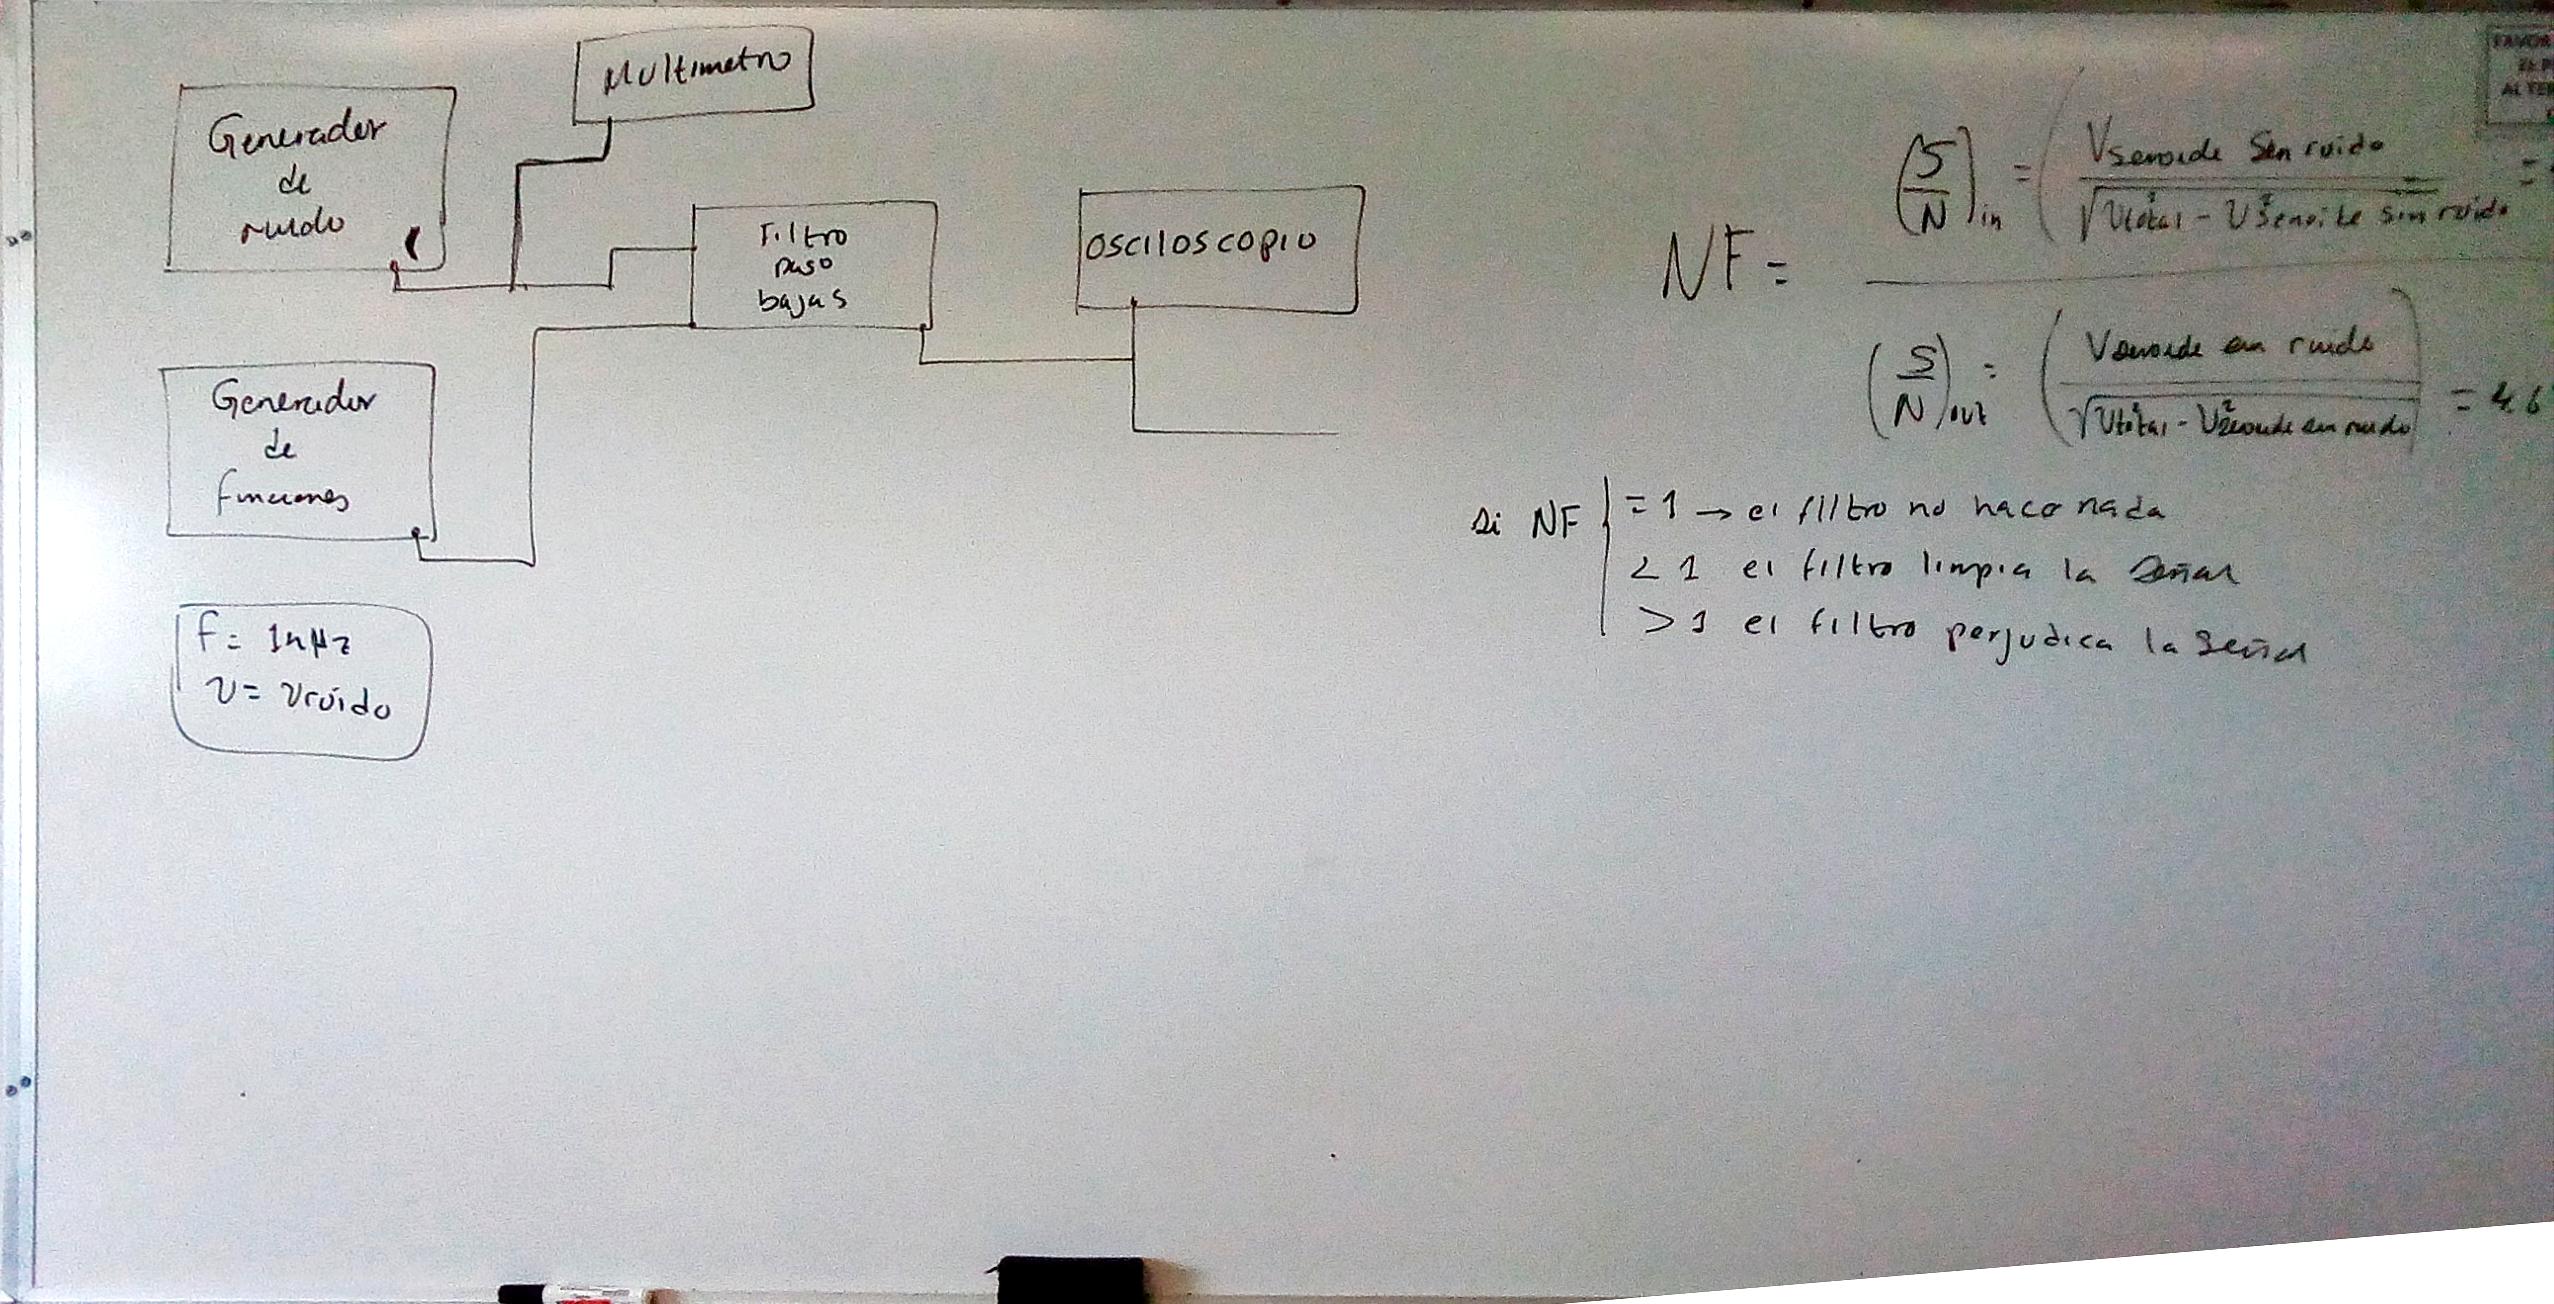 Multimetro
Generador
de
ruido
Filtro
paso
bajas
osciloscopio
Generador
de
funciones
f = 1kHz
v = Vruido
NF =
(S/N)in = (Vsenoide sin ruido / √Vtotal² - V²senoide sin ruido =
(S/N)out = (Vsenoide en ruido / √Vtotal² - V²senoide en ruido) = 4.6
si NF { = 1 → el filtro no hace nada
< 1 el filtro limpia la señal
> 1 el filtro perjudica la señal
FAVOR
EL P
AL TER